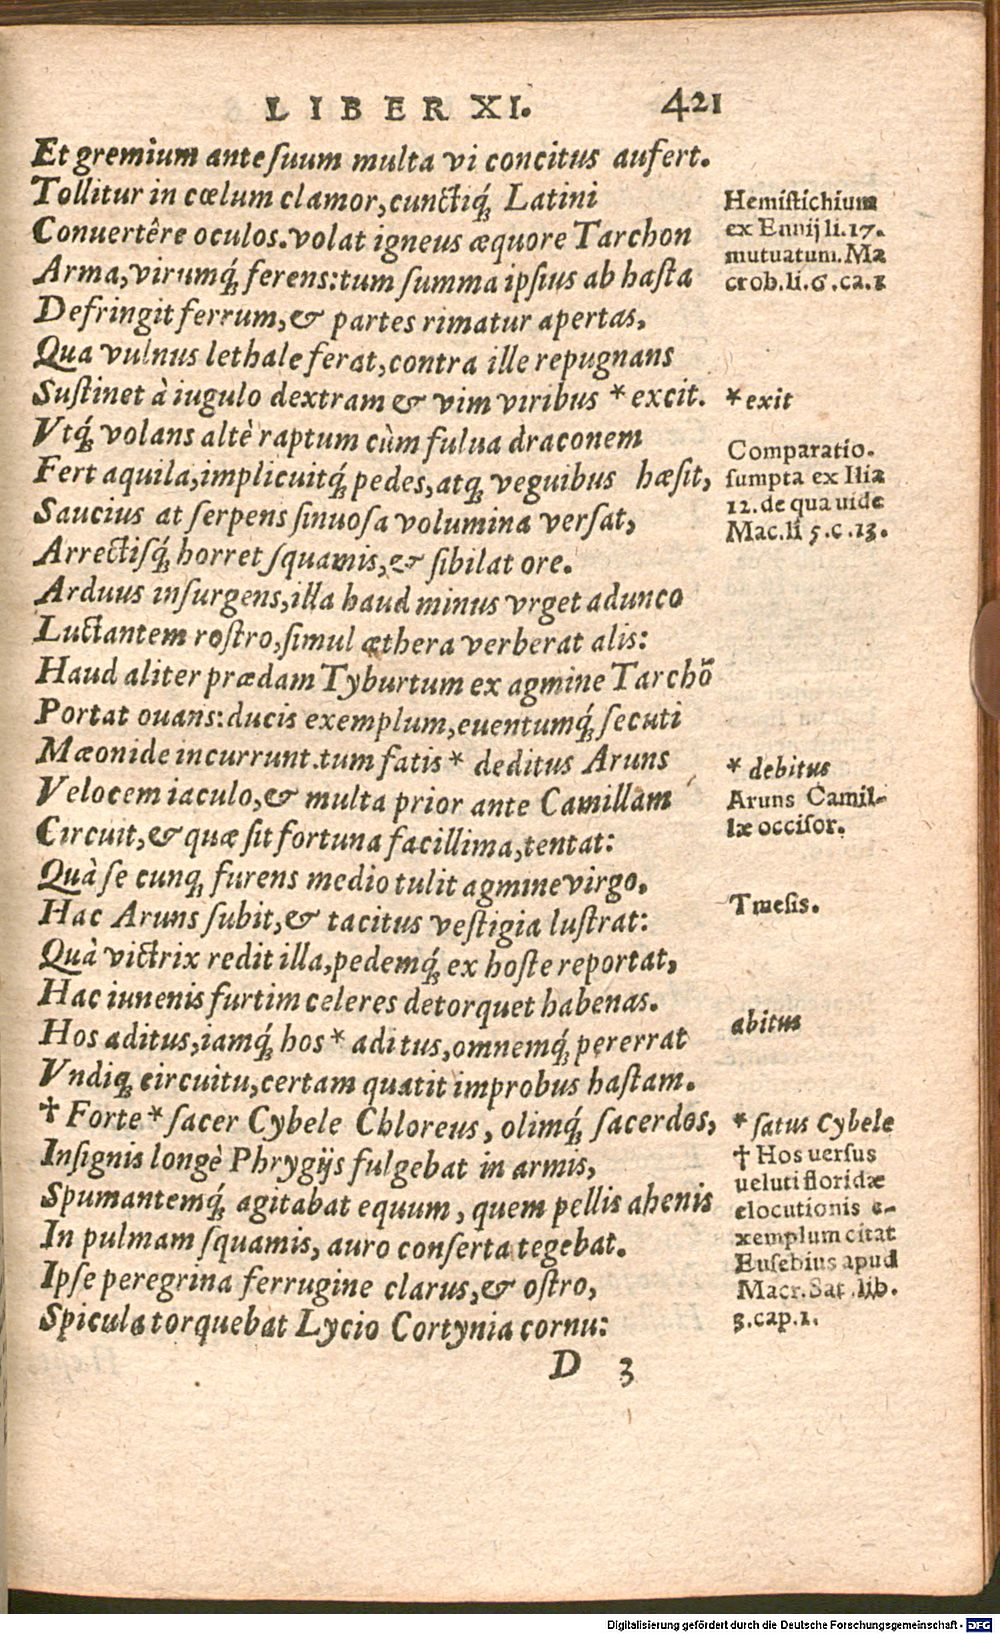 LIBER XI. 421
Et gremium ante suum multa vi concitus aufert.
Tollitur in cœlum clamor, cunctiq́ꝫ Latini
Conuertêre oculos. volat igneus æquore Tarchon
Arma, virumq́ꝫ ferens: tum summa ipsius ab hasta
Defringit ferrum, & partes rimatur apertas,
Qua vulnus lethale ferat, contra ille repugnans
Sustinet à iugulo dextram & vim viribus * excit.
Vtq́ꝫ volans altè raptum cùm fulua draconem
Fert aquila, implicuitq́ꝫ pedes, atqꝫ veguibus hæsit,
Saucius at serpens sinuosa volumina versat,
Arrectisq́ꝫ horret squamis, & sibilat ore.
Arduus insurgens, illa haud minus vrget adunco
Luctantem rostro, simul æthera verberat alis:
Haud aliter prædam Tyburtum ex agmine Tarchõ
Portat ouans: ducis exemplum, euentumq́ꝫ secuti
Mæonide incurrunt. tum fatis * deditus Aruns
Velocem iaculo, & multa prior ante Camillam
Circuit, & quæ sit fortuna facillima, tentat:
Quà se cunqꝫ furens medio tulit agmine virgo,
Hac Aruns subit, & tacitus vestigia lustrat:
Quà victrix redit illa, pedemq́ꝫ ex hoste reportat,
Hac iunenis furtim celeres detorquet habenas.
Hos aditus, iamq́ꝫ hos * aditus, omnemq́ꝫ pererrat
Vndiqꝫ circuitu, certam quatit improbus hastam.
† Forte * sacer Cybele Chloreus, olimq́ꝫ sacerdos,
Insignis longè Phrygijs fulgebat in armis,
Spumantemq́ꝫ agitabat equum, quem pellis ahenis
In pulmam squamis, auro conserta tegebat.
Ipse peregrina ferrugine clarus, & ostro,
Spicula torquebat Lycio Cortynia cornu:
D 3
Hemistichium
ex Ennij li.17.
mutuatum. Ma
crob.li.6.ca.1
* exit
Comparatio.
sumpta ex Ilia
12. de qua uide
Mac.li 5.c.13.
* debitus
Aruns Camil-
læ occisor.
Tmesis.
abitus
* satus Cybele
† Hos uersus
ueluti floridæ
elocutionis e-
xemplum citat
Eusebius apud
Macr. Sat. lib.
5.cap.1.
Digitalisierung gefördert durch die Deutsche Forschungsgemeinschaft - DFG